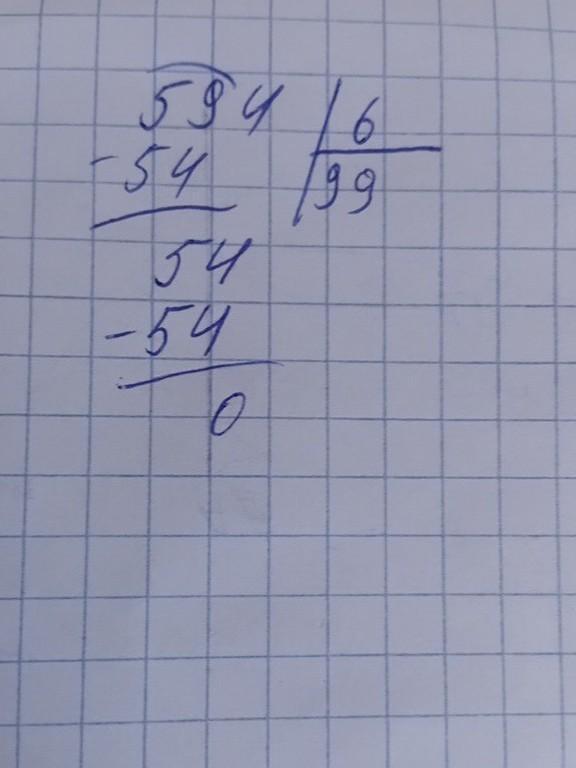 594 | 6
-54 | 99
54
-54
0